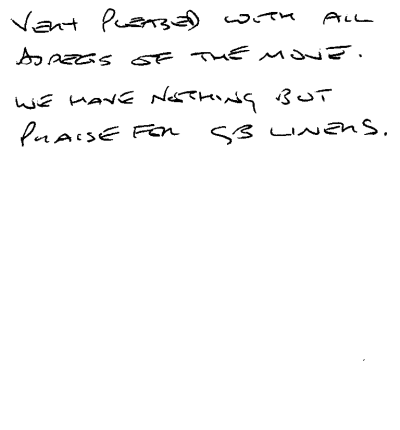 VERY PLEASED WITH ALL
ASPECTS OF THE MOVE.
WE HAVE NOTHING BUT
PRAISE FOR GB LINERS.